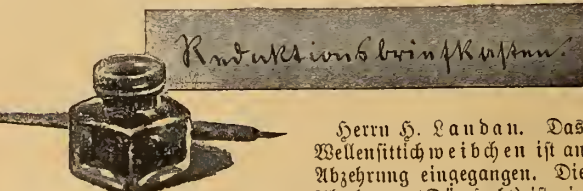 Redaktionsbriefkasten.
Herrn H. Landau. Das
Wellensittichweibchen ist an
Abzehrung eingegangen. Die